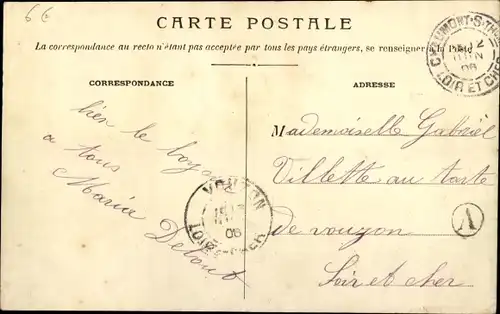 6€
CARTE POSTALE
La correspondance au recto n'étant pas acceptée par tous les pays étrangers, se renseigner à la Poste
CHAUMONT-S-THARONNE
2
JUIN
06
LOIR ET CHER
CORRESPONDANCE
ADRESSE
bien le
a tous
Maria Debout
VOUZON
06
LOIR-ET-CHER
Mademoiselle Gabriel
Villette au
de vouzon
Loir et cher
A